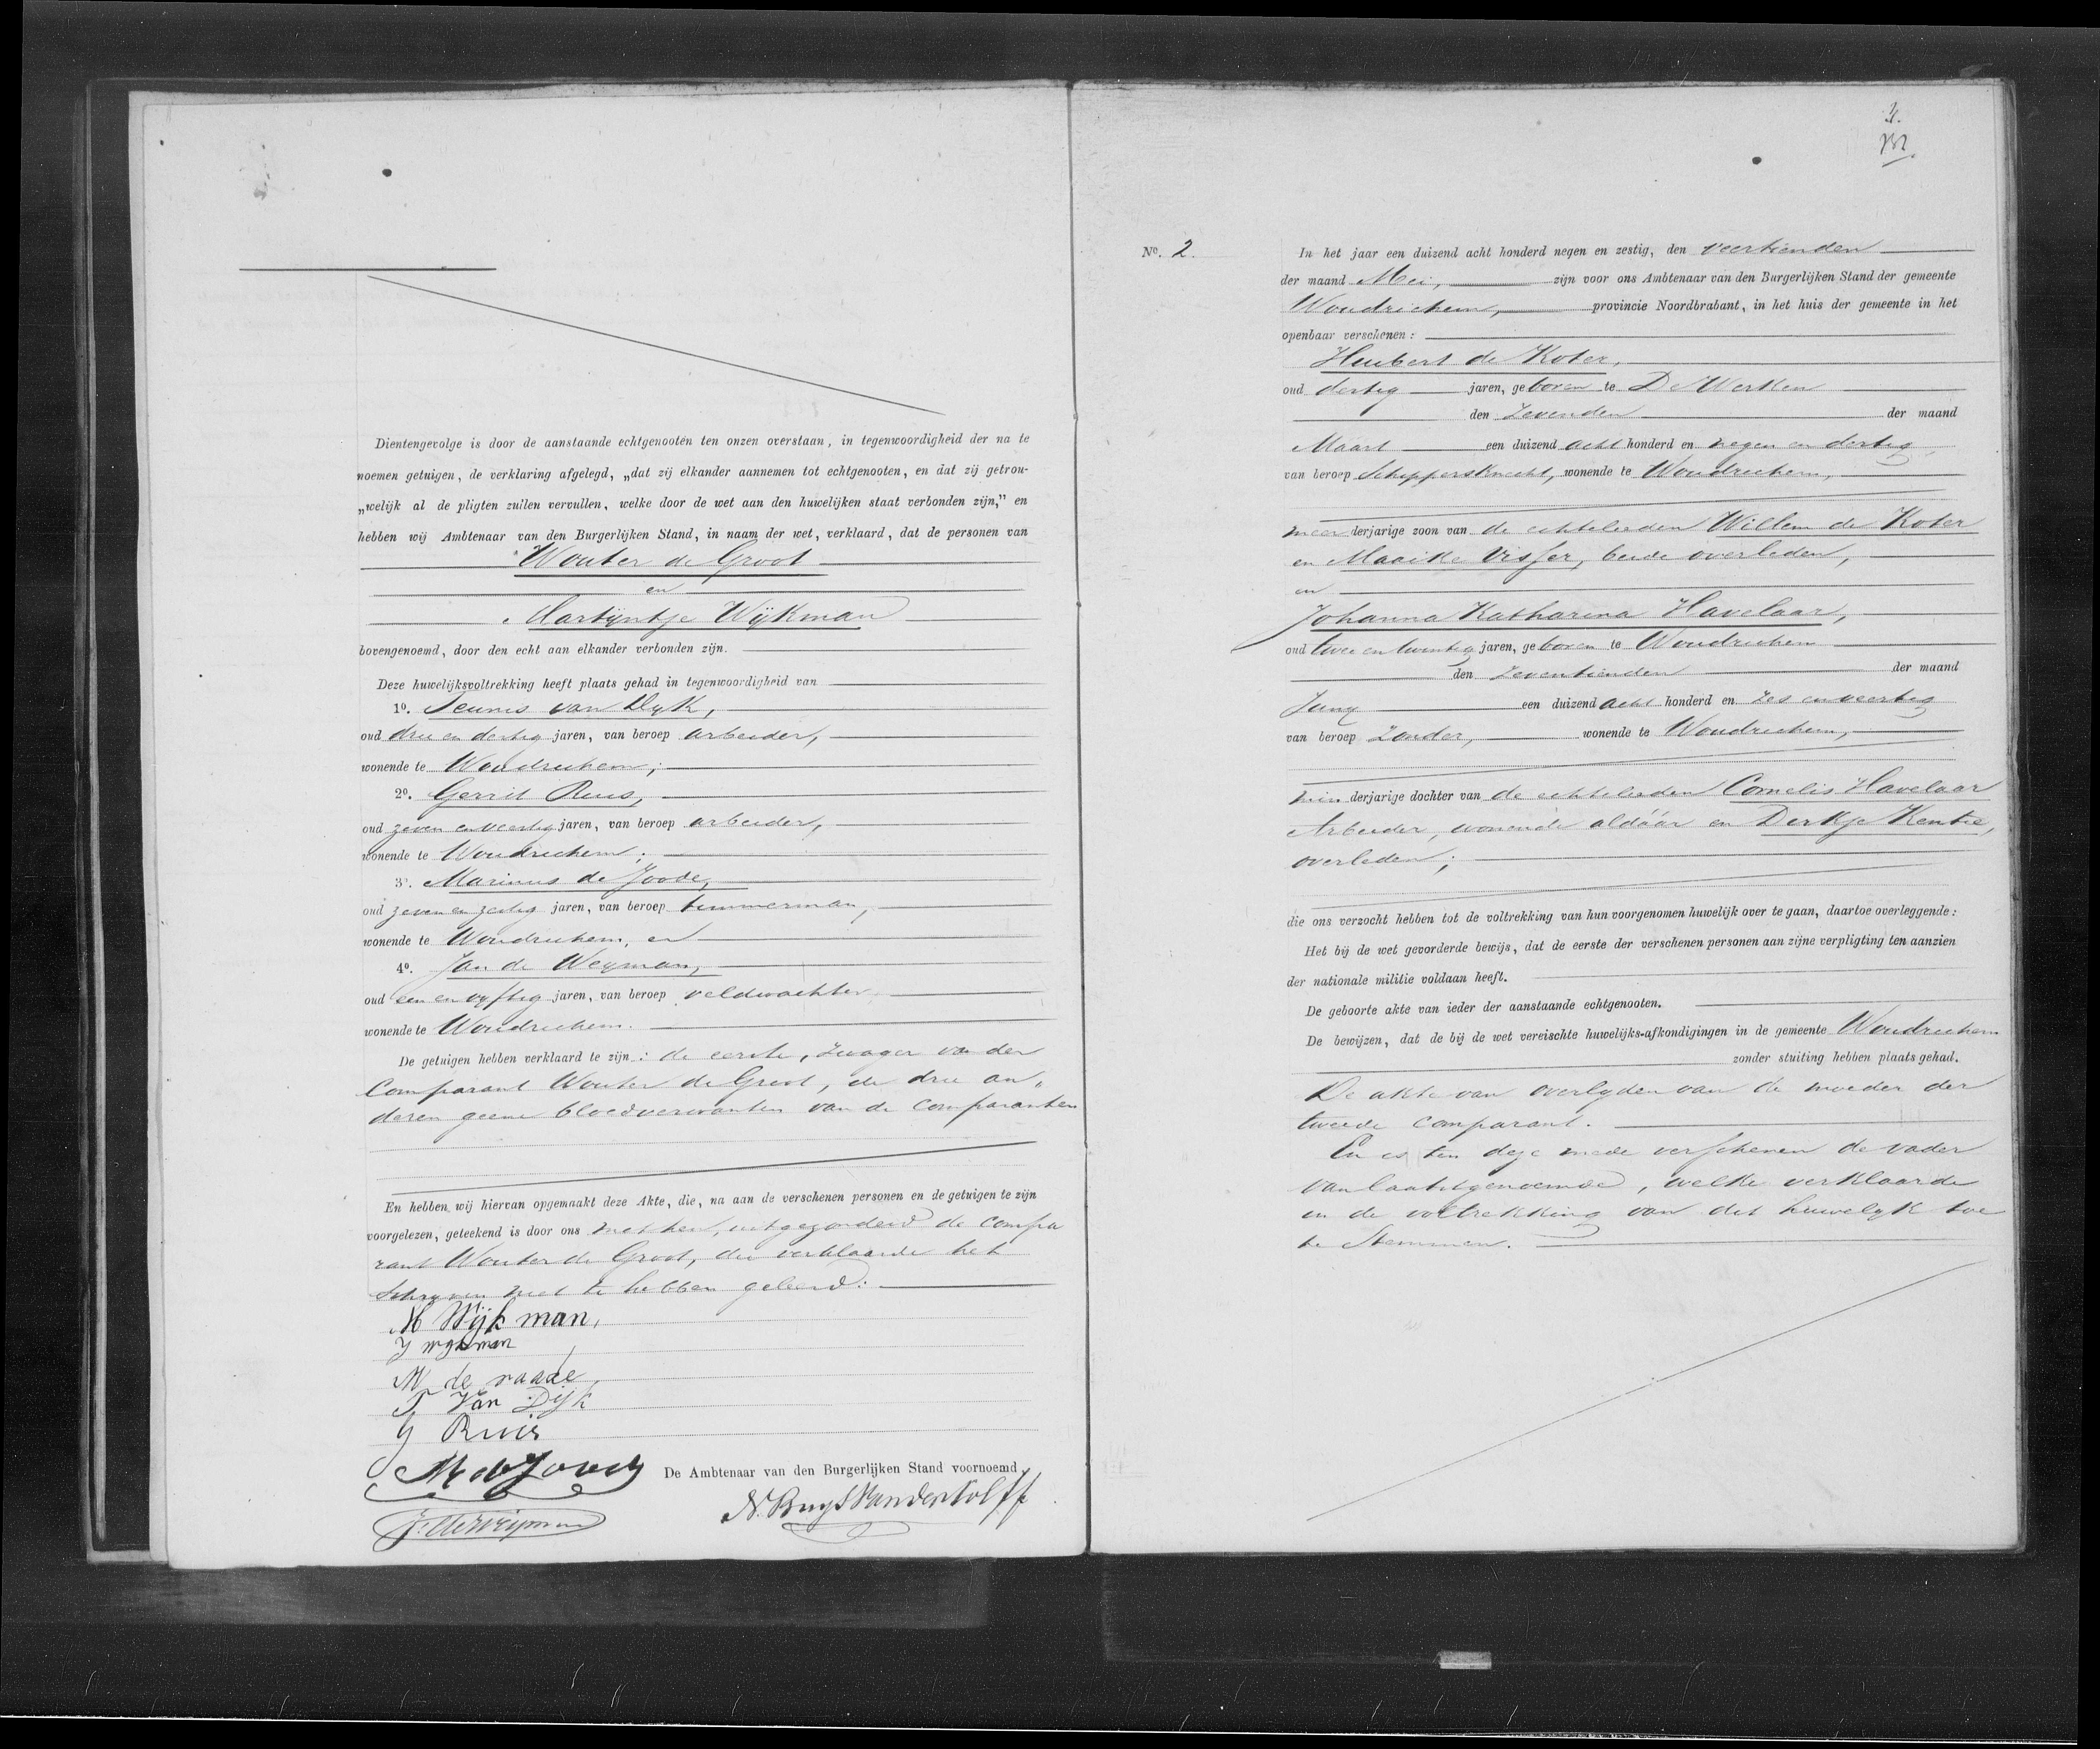 Dientengevolge is door de aanstaande echtgenooten ten onzen overstaan, in tegenwoordigheid der na te
noemen getuigen, de verklaring afgelegd, „dat zij elkander aannemen tot echtgenooten, en dat zij getrou-
„welijk al de pligten zullen vervullen, welke door de wet aan den huwelijken staat verbonden zijn,” en
hebben wij Ambtenaar van den Burgerlijken Stand, in naam der wet, verklaard, dat de personen van
Wouter de Groot
en
Martijntje Wijkman
bovengenoemd, door den echt aan elkander verbonden zijn.
Deze huwelijksvoltrekking heeft plaats gehad in tegenwoordigheid van
1º. Teunis van Dijk,
oud drie en dertig jaren, van beroep arbeider,
wonende te Woudrichem;
2º. Gerrit Ruis,
oud zeven en veertig jaren, van beroep arbeider,
wonende te Woudrichem;
3º. Marinus de Joode,
oud zeven en zestig jaren, van beroep timmerman,
wonende te Woudrichem, en
4º. Jan de Weyman,
oud een en vyftig jaren, van beroep veldwachter
wonende te Woudrichem.
De getuigen hebben verklaard te zijn: de eerste, zwager van den
Comparant Wouter de Groot, de drie an„
deren geene bloedverwanten van de Comparanten
En hebben wij hiervan opgemaakt deze Akte, die, na aan de verschenen personen en de getuigen te zijn
voorgelezen, geteekend is door ons met hen, uitgezonderd de Compa
rant Wouter de Groot, die verklaarde het
Schryven niet te hebben geleerd.
M Wijkman,
J wykman
M de raade,
T Van Dijk
G Ruis
M de Joode De Ambtenaar van den Burgerlijken Stand voornoemd,
J. de Weijman
2.
Nº. 2. In het jaar een duizend acht honderd negen en zestig, den veertienden
der maand Mei, zijn voor ons Ambtenaar van den Burgerlijken Stand der gemeente
Woudrichem, provincie Noordbrabant, in het huis der gemeente in het
openbaar verschenen:
Huibert de Koter,
oud dertig jaren, geboren te De Werken
den Zevenden der maand
Maart een duizend acht honderd en negen en dertig
van beroep Schippersknecht, wonende te Woudrichem,
meerderjarige zoon van de echtelieden Willem de Koter
en Maaike Visser, beide overleden,
en
Johanna Katharina Havelaar,
oud twee en twintig jaren, geboren te Woudrichem
den Zeventienden der maand
Juny een duizend acht honderd en zes en veertig
van beroep Zonder, wonende te Woudrichem,
minderjarige dochter van de echtelieden Cornelis Havelaar
Arbeider, wonende aldáár en Derkje Kentie,
overleden;
die ons verzocht hebben tot de voltrekking van hun voorgenomen huwelijk over te gaan, daartoe overleggende:
Het bij de wet gevorderde bewijs, dat de eerste der verschenen personen aan zijne verpligting ten aanzien
der nationale militie voldaan heeft.
De geboorte akte van ieder der aanstaande echtgenooten.
De bewijzen, dat de bij de wet vereischte huwelijks-afkondigingen in de gemeente Woudrichem
zonder stuiting hebben plaats gehad.
De akte van overlyden van de moeder der
tweede Comparant.
En is ten deze mede verschenen de vader
van laatstgenoemde, welke verklaarde
in de voltrekking van dit huwelyk toe
te Stemmen.